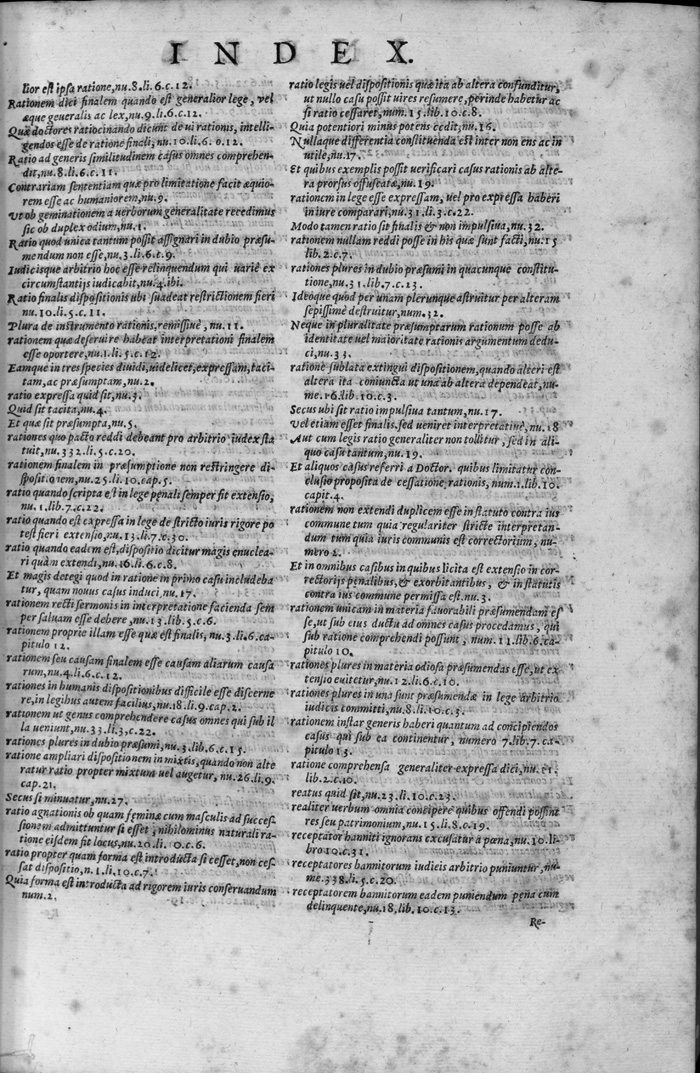 INDEX.
lior est ipsa ratione, nu.8.li.6.c.12.
Rationem dici finalem quando est generalior lege, vel
æque generalis ac lex, nu.9.li.6.c.12.
Quæ doctores ratiocinando dicunt de ui rationis, intelli-
gendos esse de ratione finali, nu.10.li.6.c.12.
Ratio ad generis similitudinem casus omnes comprehen-
dit, nu.8.li.6.c.11.
Contrariam sententiam quæ pro limitatione facit æquio-
rem esse ac humaniorem, nu.9.
Vt ob geminationem a uerborum generalitate recedimus
sic ob duplex odium, nu.1.
Ratio quod unica tantum possit assignari in dubio præsu-
mendum non esse, nu.3.li.6.c.9.
Iudicisque arbitrio hoc esse relinquendum qui uariè ex
circumstantijs iudicabit, nu.4.ibi.
Ratio finalis dispositionis ubi suadeat restrictionem fieri
nu.10.li.5.c.11.
Plura de instrumento rationis, remissiuè, nu.11.
rationem quæ deseruire habeat interpretationi finalem
esse oportere, nu.1.li.5.c.12.
Eamque in tres species diuidi, uidelicet, expressam, taci-
tam, ac præsumptam, nu.2.
ratio expressa quid sit, nu.3.
Quid sit tacita, nu.4.
Et quæ sit præsumpta, nu.5.
rationes quo pacto reddi debeant pro arbitrio iudex sta
tuit, nu.332.li.5.c.20.
rationem finalem in præsumptione non restringere di-
spositionem, nu.25.li.10.cap.5.
ratio quando scripta est in lege penali semper fit extensio,
nu.1.lib.7.c.22.
ratio quando est expressa in lege de stricto iuris rigore po
test fieri extensio, nu.13.li.7.c.30.
ratio quando eadem est, dispositio dicitur magis enuclea-
ri quàm extendi, nu.16.li.6.c.8.
Et magis detegi quod in ratione in primo casu includeba
tur, quam nouus casus induci, nu.17.
rationem recti sermonis in interpretatione facienda sem
per saluam esse debere, nu.13.lib.5.c.6.
rationem proprie illam esse quæ est finalis, nu.3.li.6.ca-
pitulo 12.
rationem seu causam finalem esse causam aliarum causa
rum, nu.4.li.6.c.12.
rationes in humanis dispositionibus difficile esse discerne
re, in legibus autem facilius, nu.18.li.9.cap.2.
rationem ut genus comprehendere casus omnes qui sub il
la ueniunt, nu.33.li.3.c.22.
rationes plures in dubio præsumi, nu.3.lib.6.c.13.
ratione ampliari dispositionem in mixtis, quando non alte
ratur ratio propter mixtum uel augetur, nu.26.li.9.
cap.21.
Secus si minuatur, nu.27.
ratio agnationis ob quam feminæ cum masculis ad succes-
sionem admittuntur si esset, nihilominus naturali ra-
tione eisdem fit locus, nu.20.li.10.c.6.
ratio propter quam forma est introducta si cesset, non ces
sat dispositio, n.1.li.10.c.7.
Quia forma est introducta ad rigorem iuris conseruandum
num.2.
ratio legis uel dispositionis quæ ita ab altera confunditur,
ut nullo casu possit uires resumere, perinde habetur ac
si ratio cessaret, num.15.lib.10.c.8.
Quia potentiori minus potens cedit, nu.16.
Nullaque differentia constituenda est inter non ens ac in
utile, nu.17.
Et quibus exemplis possit uerificari casus rationis ab alte-
ra prorsus offuscatæ, nu.19.
rationem in lege esse expressam, uel pro expressa haberi
in iure comparari, nu.31.li.3.c.22.
Modo tamen ratio sit finalis & non impulsiua, nu.32.
rationem nullam reddi posse in his quæ sunt facti, nu.15
lib.2.c.7.
rationes plures in dubio præsumi in quacunque constitu-
tione, nu.31.lib.7.c.23.
Ideoque quod per unam plerunque astruitur per alteram
sepissimè destruitur, num.32.
Neque in pluralitate præsumptarum rationum posse ab
identitate uel maioritate rationis argumentum dedu-
ci, nu.33.
ratione sublata extingui dispositionem, quando alteri est
altera ita coniuncta ut una ab altera dependeat, nu-
me.16.lib.10.c.3.
Secus ubi sit ratio impulsiua tantum, nu.17.
Vel etiam esset finalis, sed ueniret interpretatiuè, nu.18
Aut cum legis ratio generaliter non tollitur, sed in ali-
quo casu tantum, nu.19.
Et aliquos casus referri a Doctor. quibus limitatur con-
clusio proposita de cessatione rationis, num.1.lib.10.
capit.4.
rationem non extendi duplicem esse in statuto contra ius
commune tum quia regulariter stricte interpretan-
dum tum quia iuris communis est correctorium, nu-
mero 2.
Et in omnibus casibus in quibus licita est extensio in cor-
rectorijs penalibus, & exorbitantibus, & in statutis
contra ius commune permissa est. nu.3.
rationem unicam in materia fauorabili præsumendam es
se, ut sub eius ductu ad omnes casus procedamus, qui
sub ratione comprehendi possunt, num.12.lib.6.ca-
pitulo 10.
rationes plures in materia odiosa præsumendas esse, ut ex
tensio euitetur, nu.12.li.6.c.10.
rationes plures in una sunt præsumendæ in lege arbitrio
iudicis committi, nu.8.li.10.c.3.
rationem instar generis haberi quantum ad concipiendos
casus qui sub ea continentur, numero 7.lib.7.ca-
pitulo 13.
ratione comprehensa generaliter expressa dici, nu.11.
lib.2.c.10.
reatus quid sit, nu.23.li.10.c.23.
realiter uerbum omnia concipere quibus offendi possint
res seu patrimonium, nu.15.li.8.c.19.
receptator banniti ignorans excusatur a pœna, nu.10.li-
bro 10.c.31.
receptatores bannitorum iudicis arbitrio puniuntur, nu-
me.338.li.5.c.20.
receptatorem bannitorum eadem puniendum pena cum
delinquente, nu.18.lib.10.c.13.
Re-